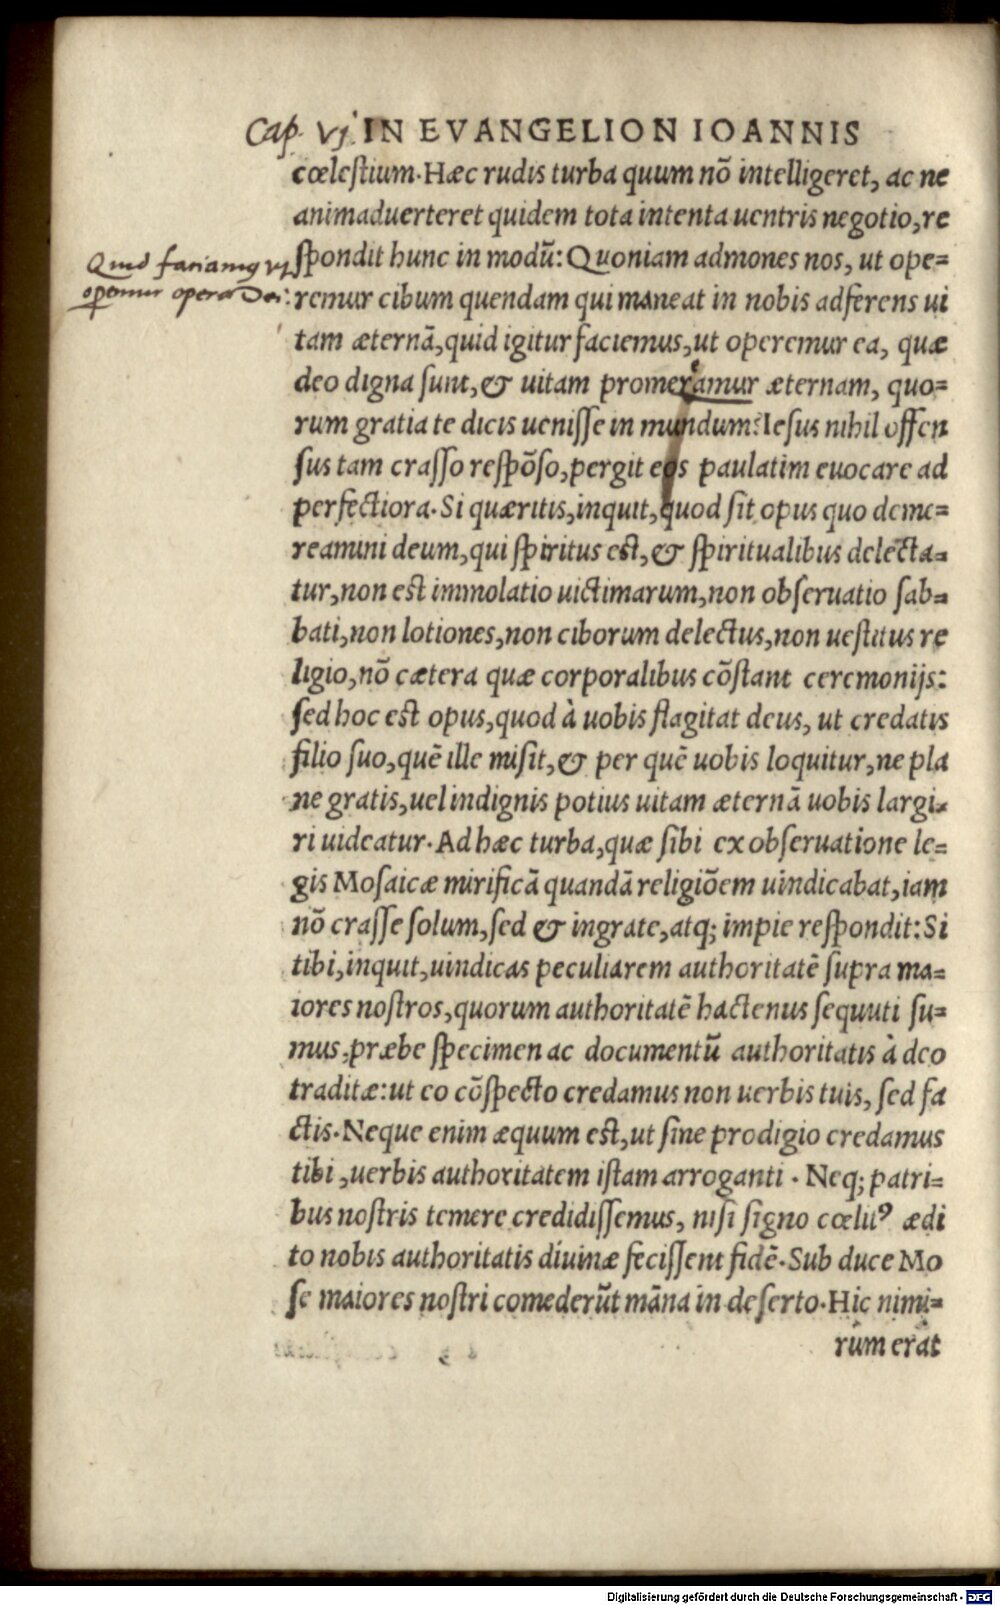 Cap. vj. IN EVANGELION IOANNIS
cœlestium. Hæc rudis turba quum nō intelligeret, ac ne
animaduerteret quidem tota intenta uentris negotio, re
Quid faciamus vt
spondit hunc in modū: Quoniam admones nos, ut ope=
operemur opera Dei:
remur cibum quendam qui maneat in nobis adferens ui
tam æternā, quid igitur faciemus, ut operemur ea, quæ
deo digna sunt, & uitam promeramur æternam, quo=
rum gratia te dicis uenisse in mundum? Iesus nihil offen
sus tam crasso respōso, pergit eos paulatim euocare ad
perfectiora. Si quæritis, inquit, quod sit opus quo deme=
reamini deum, qui spiritus est, & spiritualibus delecta=
tur, non est immolatio uictimarum, non obseruatio sab=
bati, non lotiones, non ciborum delectus, non uestitus re
ligio, nō cætera quæ corporalibus cōstant ceremonijs:
sed hoc est opus, quod à uobis flagitat deus, ut credatis
filio suo, quē ille misit, & per quē uobis loquitur, ne pla
ne gratis, uel indignis potius uitam æternā uobis largi=
ri uideatur. Ad hæc turba, quæ sibi ex obseruatione le=
gis Mosaicæ mirificā quandā religiōem uindicabat, iam
nō crasse solum, sed & ingrate, atq; impie respondit: Si
tibi, inquit, uindicas peculiarem authoritatē supra ma=
iores nostros, quorum authoritatē hactenus sequuti su=
mus, præbe specimen ac documentū authoritatis à deo
traditæ: ut eo cōspecto credamus non uerbis tuis, sed fa
ctis. Neque enim æquum est, ut sine prodigio credamus
tibi, uerbis authoritatem istam arroganti. Neq; patri=
bus nostris temere credidissemus, nisi signo cœlitꝰ ædi
to nobis authoritatis diuinæ fecissent fidē. Sub duce Mo
se maiores nostri comederūt māna in deserto. Hic nimi=
rum erat
Digitalisierung gefördert durch die Deutsche Forschungsgemeinschaft - DFG